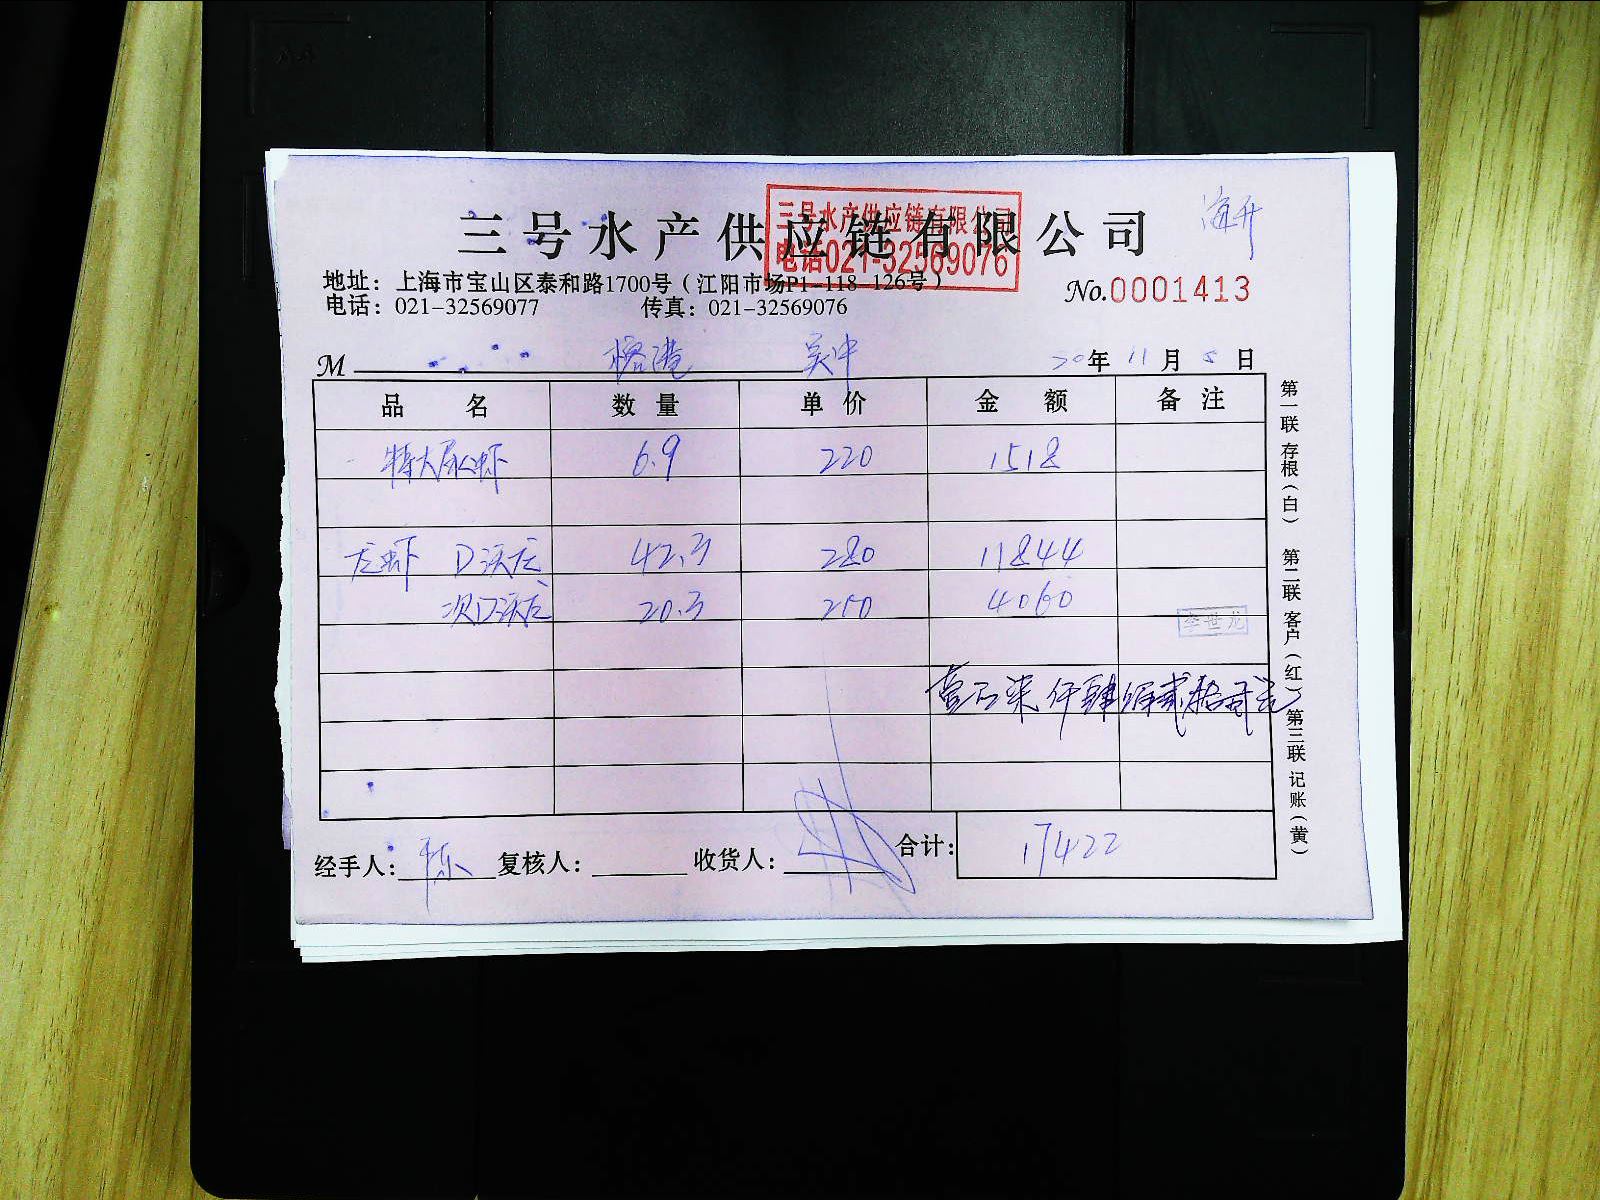 三号水产供应链有限公司
三号水产供应链有限公司
电话021-32569076
海升
地址：上海市宝山区泰和路1700号（江阳市场P1-118-126号）
No.0001413
电话：021-32569077 传真：021-32569076
M 榕港 吴中 20年 11月 5日
品名 数量 单价 金额 备注
特大尿虾 6.9 220 1518
龙虾 D沃龙 42.3 280 11844
次D沃龙 20.3 200 4060
李世龙
壹万柒仟肆佰贰拾贰元
经手人：陈 复核人： 收货人： 合计：17422
第一联 存根（白） 第二联 客户（红） 第三联 记账（黄）